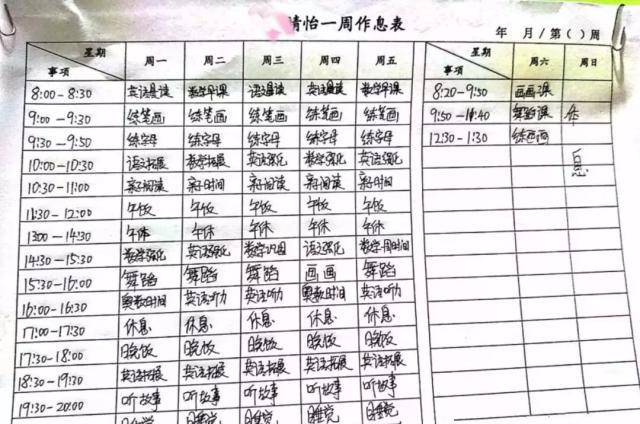 婧怡一周作息表
年 月/第( )周
星期 事项 周一 周二 周三 周四 周五
8:00-8:30 英语晨读 数学早课 语文晨读 英语晨读 数学早课
9:00-9:30 练笔画 练笔画 练笔画 练笔画 练笔画
9:30-9:50 练字母 练字母 练字母 练字母 练字母
10:00-10:30 语文拓展 数学拓展 英语强化 数学拓展 英语强化
10:30-11:00 亲子阅读 亲子时间 亲子阅读 亲子阅读 亲子时间
11:30-12:00 午饭 午饭 午饭 午饭 午饭
13:00-14:30 午休 午休 午休 午休 午休
14:30-15:30 数学强化 英语强化 数学 语文强化 数学
15:30-16:00 舞蹈 舞蹈 舞蹈 画画 舞蹈
16:00-16:30 奥数时间 英语听力 英语听力 奥数时间 英语听力
17:00-17:30 休息 休息 休息 休息 休息
17:30-18:00 晚饭 晚饭 晚饭 晚饭 晚饭
18:30-19:30 英语拓展 英语拓展 英语拓展 英语拓展 英语拓展
19:30-20:00 听故事 听故事 听故事 听故事 听故事
睡觉 睡觉 睡觉 睡觉 睡觉
星期 事项 周六 周日
8:20-9:50 画画课
9:50-11:40 舞蹈课 休
12:30-1:30 练画画
息